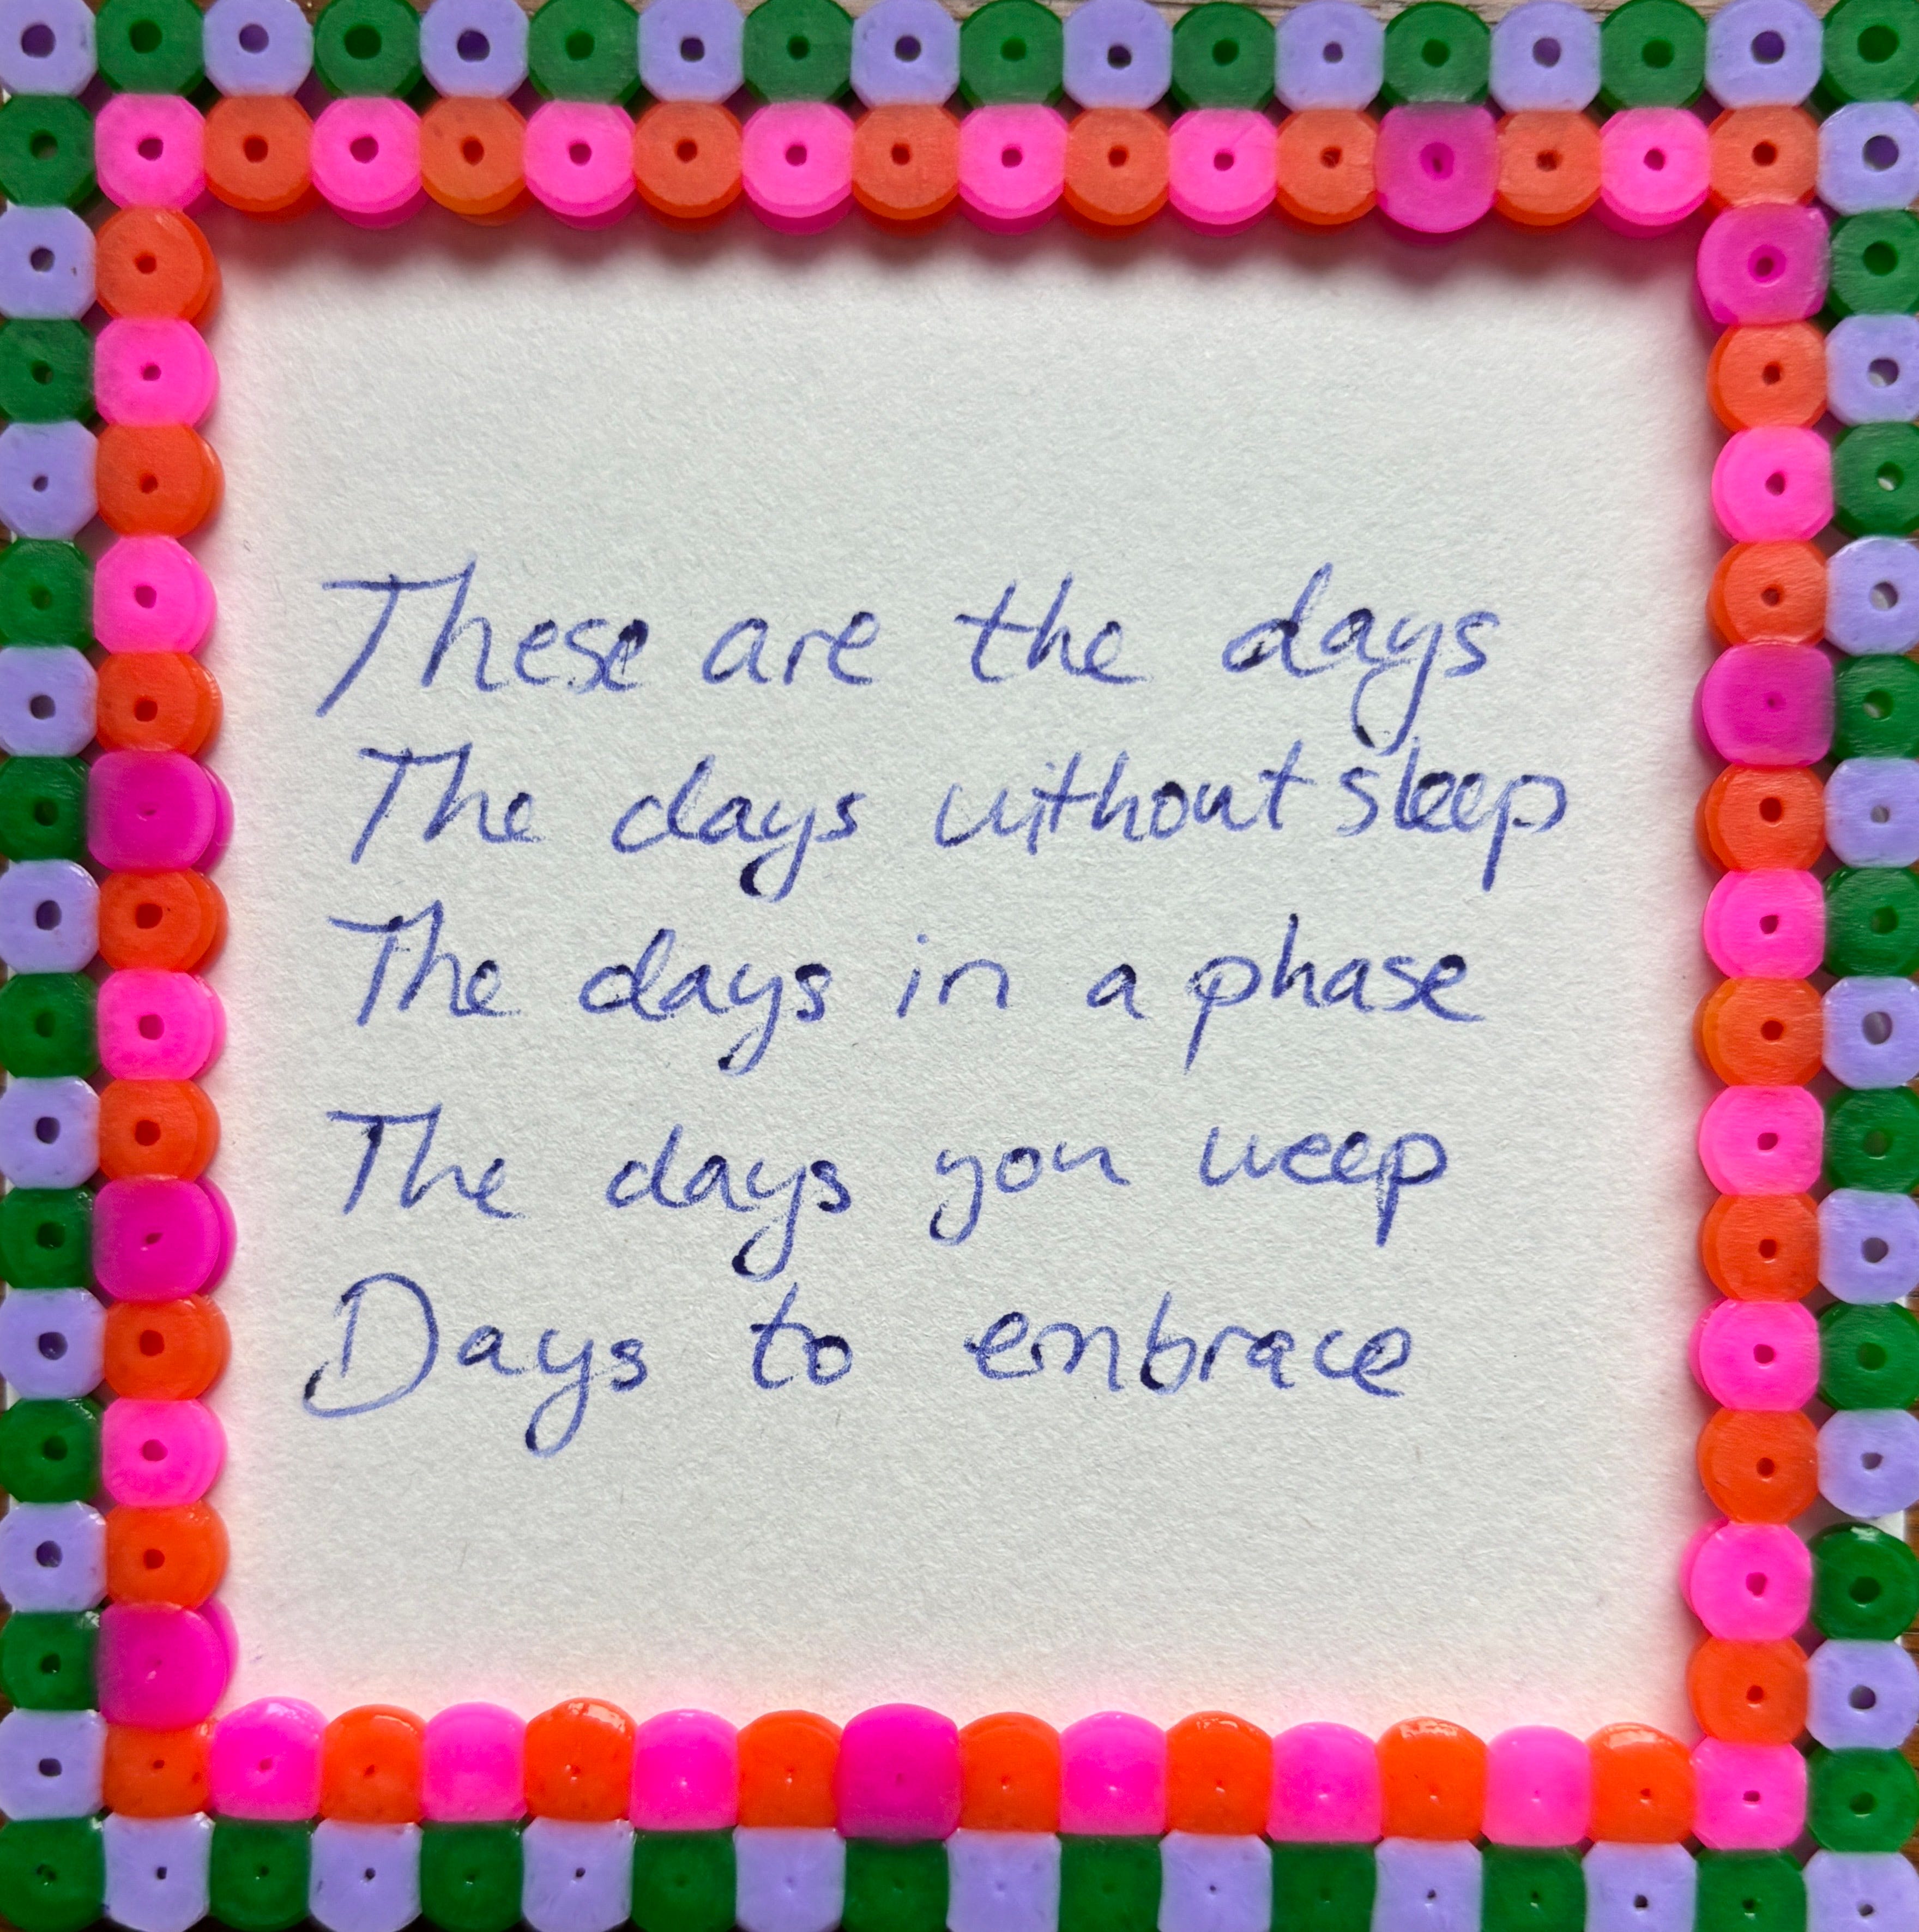 These are the days
The days without sleep
The days in a phase
The days you weep
Days to embrace